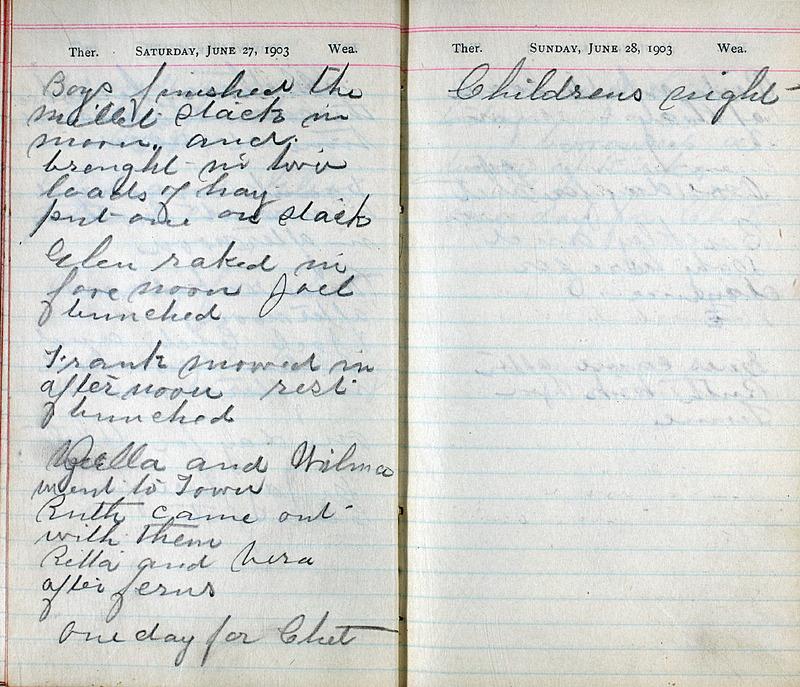 Ther. SATURDAY, JUNE 27, 1903 Wea.
Boys finished the
millet stack in
morn, and
brought in two
loads of hay
put one on stack
Glen raked in
fore noon Joel
bunched
Frank mowed in
after noon rest
bunched
and Wilma
went to Town
Ruth came out
with them
Rella and Vera
after ferns
One day for Chet
Ther. SUNDAY, JUNE 28, 1903 Wea.
Childrens night